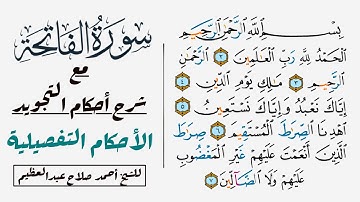 سورة الفاتحة
مع
شرح أحكام التجويد
الأحكام التفصيلية
للشيخ أحمد صلاح عبدالعظيم
بِسْمِ اللَّهِ الرَّحْمَٰنِ الرَّحِيمِ
الْحَمْدُ لِلَّهِ رَبِّ الْعَالَمِينَ ٢ الرَّحْمَٰنِ
الرَّحِيمِ ٣ مَالِكِ يَوْمِ الدِّينِ ٤
إِيَّاكَ نَعْبُدُ وَإِيَّاكَ نَسْتَعِينُ ٥
اهْدِنَا الصِّرَاطَ الْمُسْتَقِيمَ ٦ صِرَاطَ
الَّذِينَ أَنْعَمْتَ عَلَيْهِمْ غَيْرِ الْمَغْضُوبِ
عَلَيْهِمْ وَلَا الضَّالِّينَ ٧